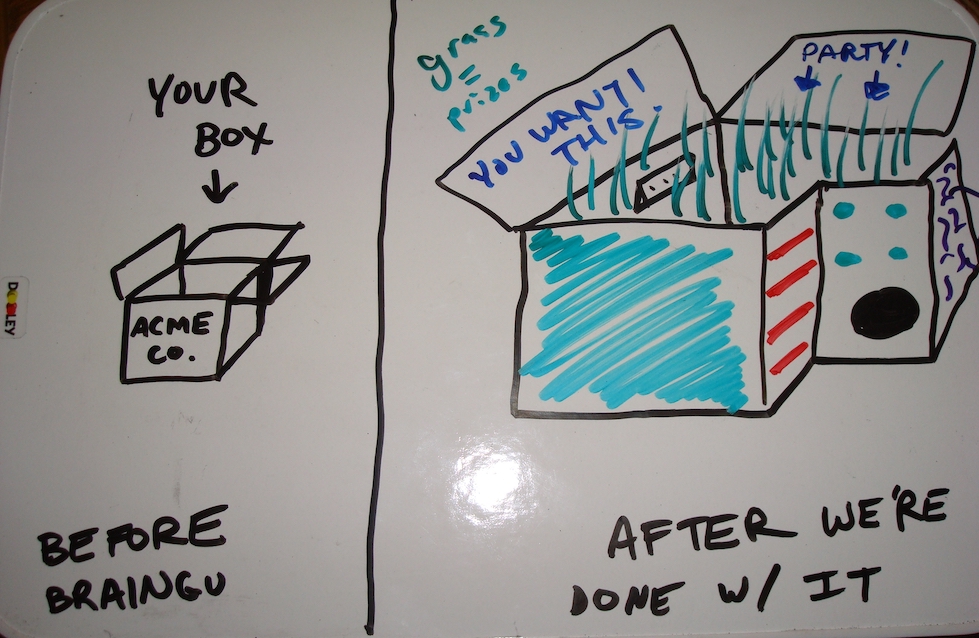 YOUR
BOX
ACME
CO.
BEFORE
BRAINGU
grass
=
prizes
YOU WANT!
THIS.
PARTY!
AFTER WE'RE
DONE W/ IT
DOOLEY